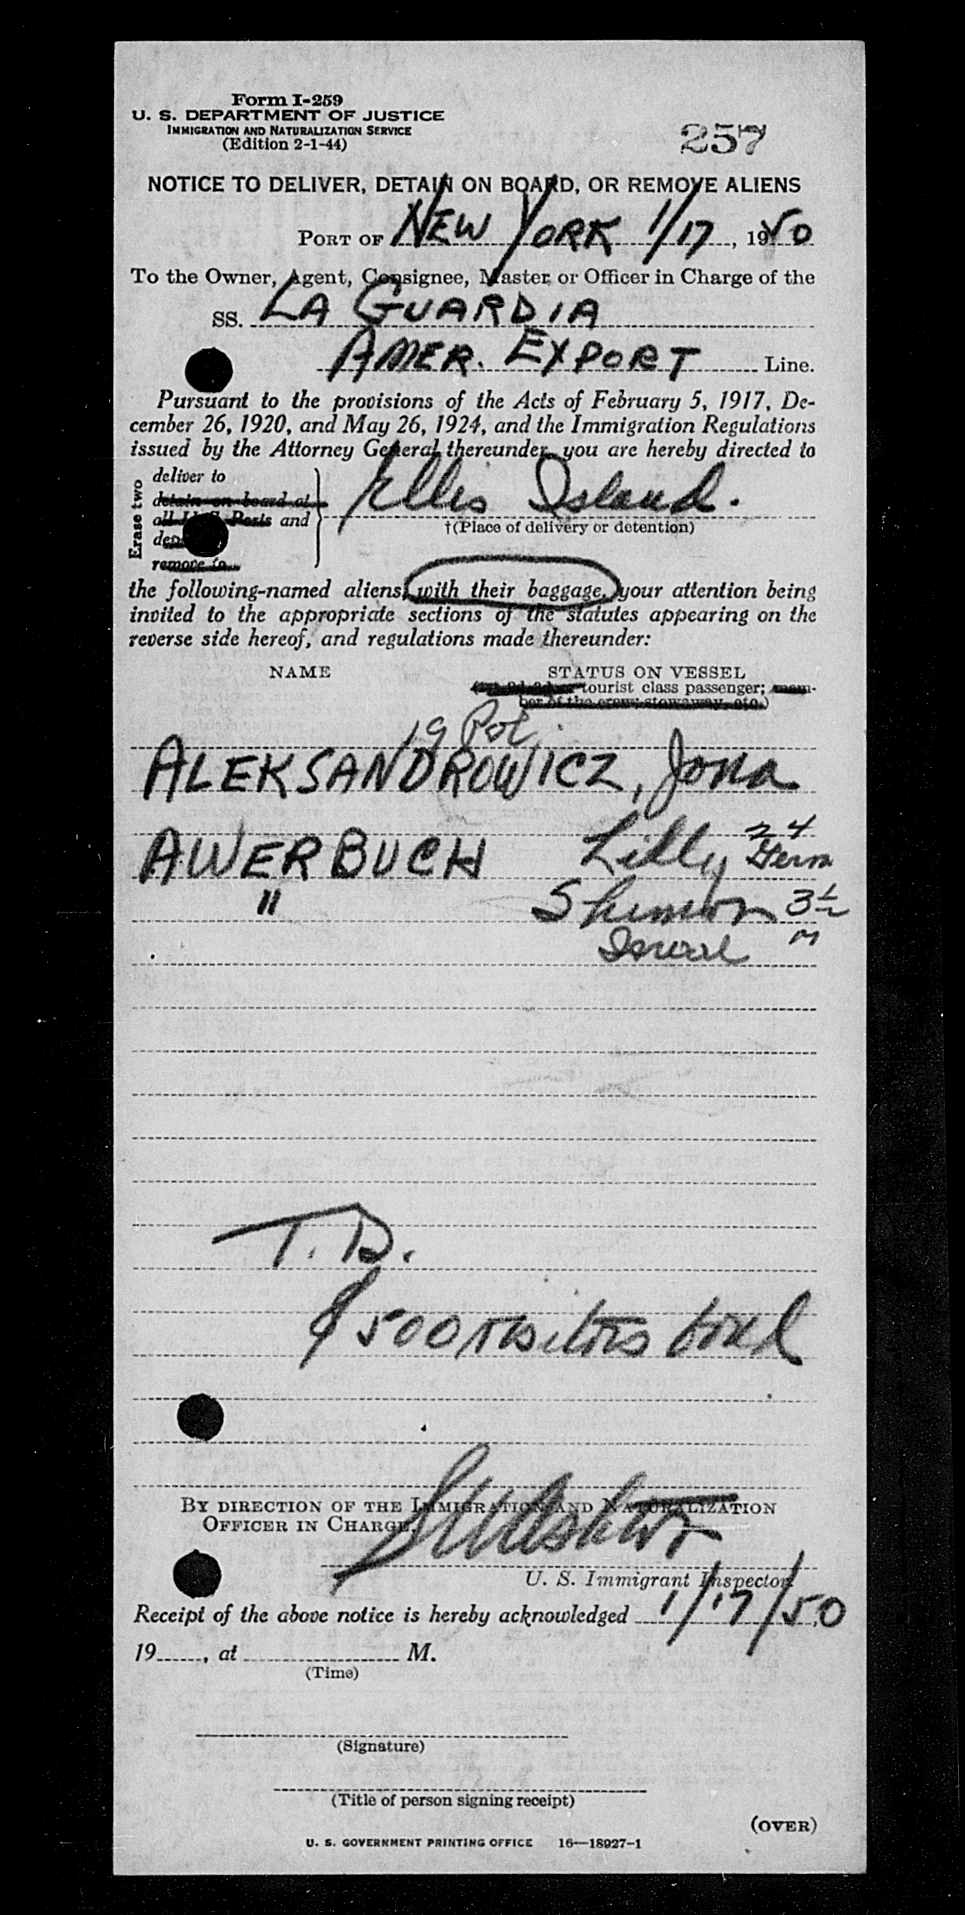 Form I-259
U. S. DEPARTMENT OF JUSTICE
IMMIGRATION AND NATURALIZATION SERVICE
(Edition 2-1-44)
257
NOTICE TO DELIVER, DETAIN ON BOARD, OR REMOVE ALIENS
PORT OF NEW YORK 1/17, 1950
To the Owner, Agent, Consignee, Master, or Officer in Charge of the
SS. LA GUARDIA
AMER. EXPORT Line.
Pursuant to the provisions of the Acts of February 5, 1917, De-
cember 26, 1920, and May 26, 1924, and the Immigration Regulations
issued by the Attorney General thereunder, you are hereby directed to
Erase two
deliver to
detain on board at
all U. S. Ports and
remove to
Ellis Island.
†(Place of delivery or detention)
the following-named aliens, with their baggage, your attention being
invited to the appropriate sections of the statutes appearing on the
reverse side hereof, and regulations made thereunder:
NAME STATUS ON VESSEL
tourist class passenger; mem-
ber of the crew; stowaway, etc.)
19 Pol
ALEKSANDROWICZ, Jona
AWERBUCH Lilly 24 Germ
" Shimon 3½
Israel M
T. D.
$500 visitors bond
BY DIRECTION OF THE IMMIGRATION AND NATURALIZATION
OFFICER IN CHARGE.
U. S. Immigrant Inspector.
Receipt of the above notice is hereby acknowledged 1/17/50
19......, at .................... M.
(Time)
(Signature)
(Title of person signing receipt)
(OVER)
U. S. GOVERNMENT PRINTING OFFICE 16—18927-1